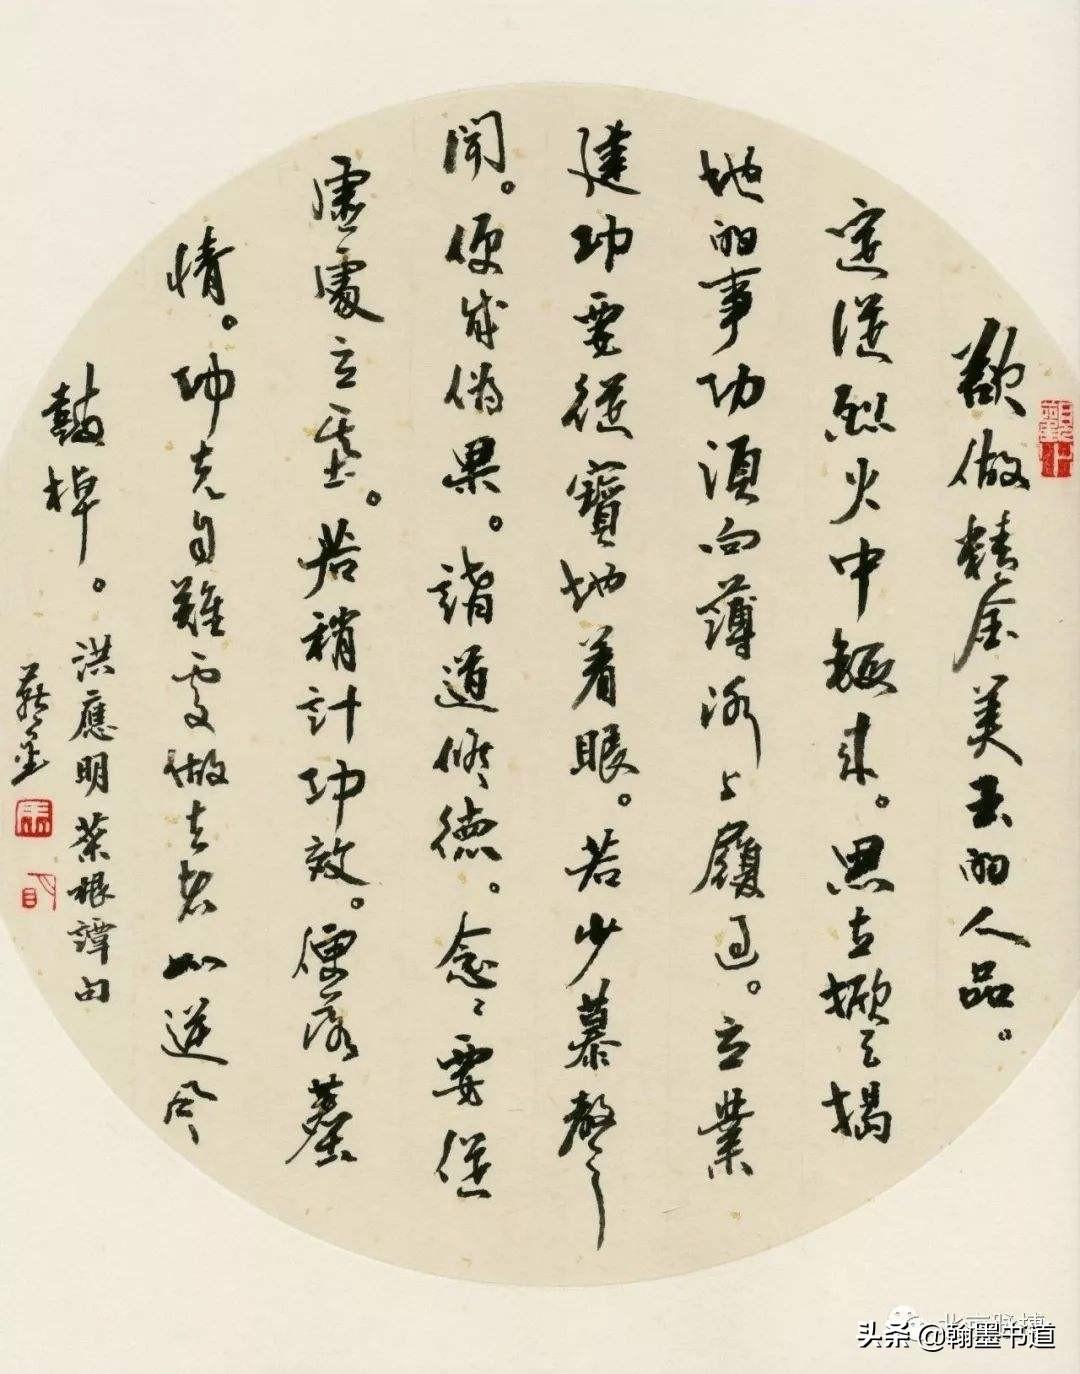 欲做精金美玉的人品。
定從烈火中鍛來。思立掀天揭
地的事功須向薄冰上履過。立業
建功要從實地着眼。若少慕聲
聞。便成偽果。講道修德。念々要從
虛處立基。若稍計功效。便落塵
情。功夫自難處做去者如逆風
鼓棹。
洪應明菜根譚句
頭条 @翰墨书道